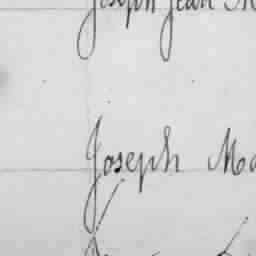 Joseph Jean
Joseph Ma